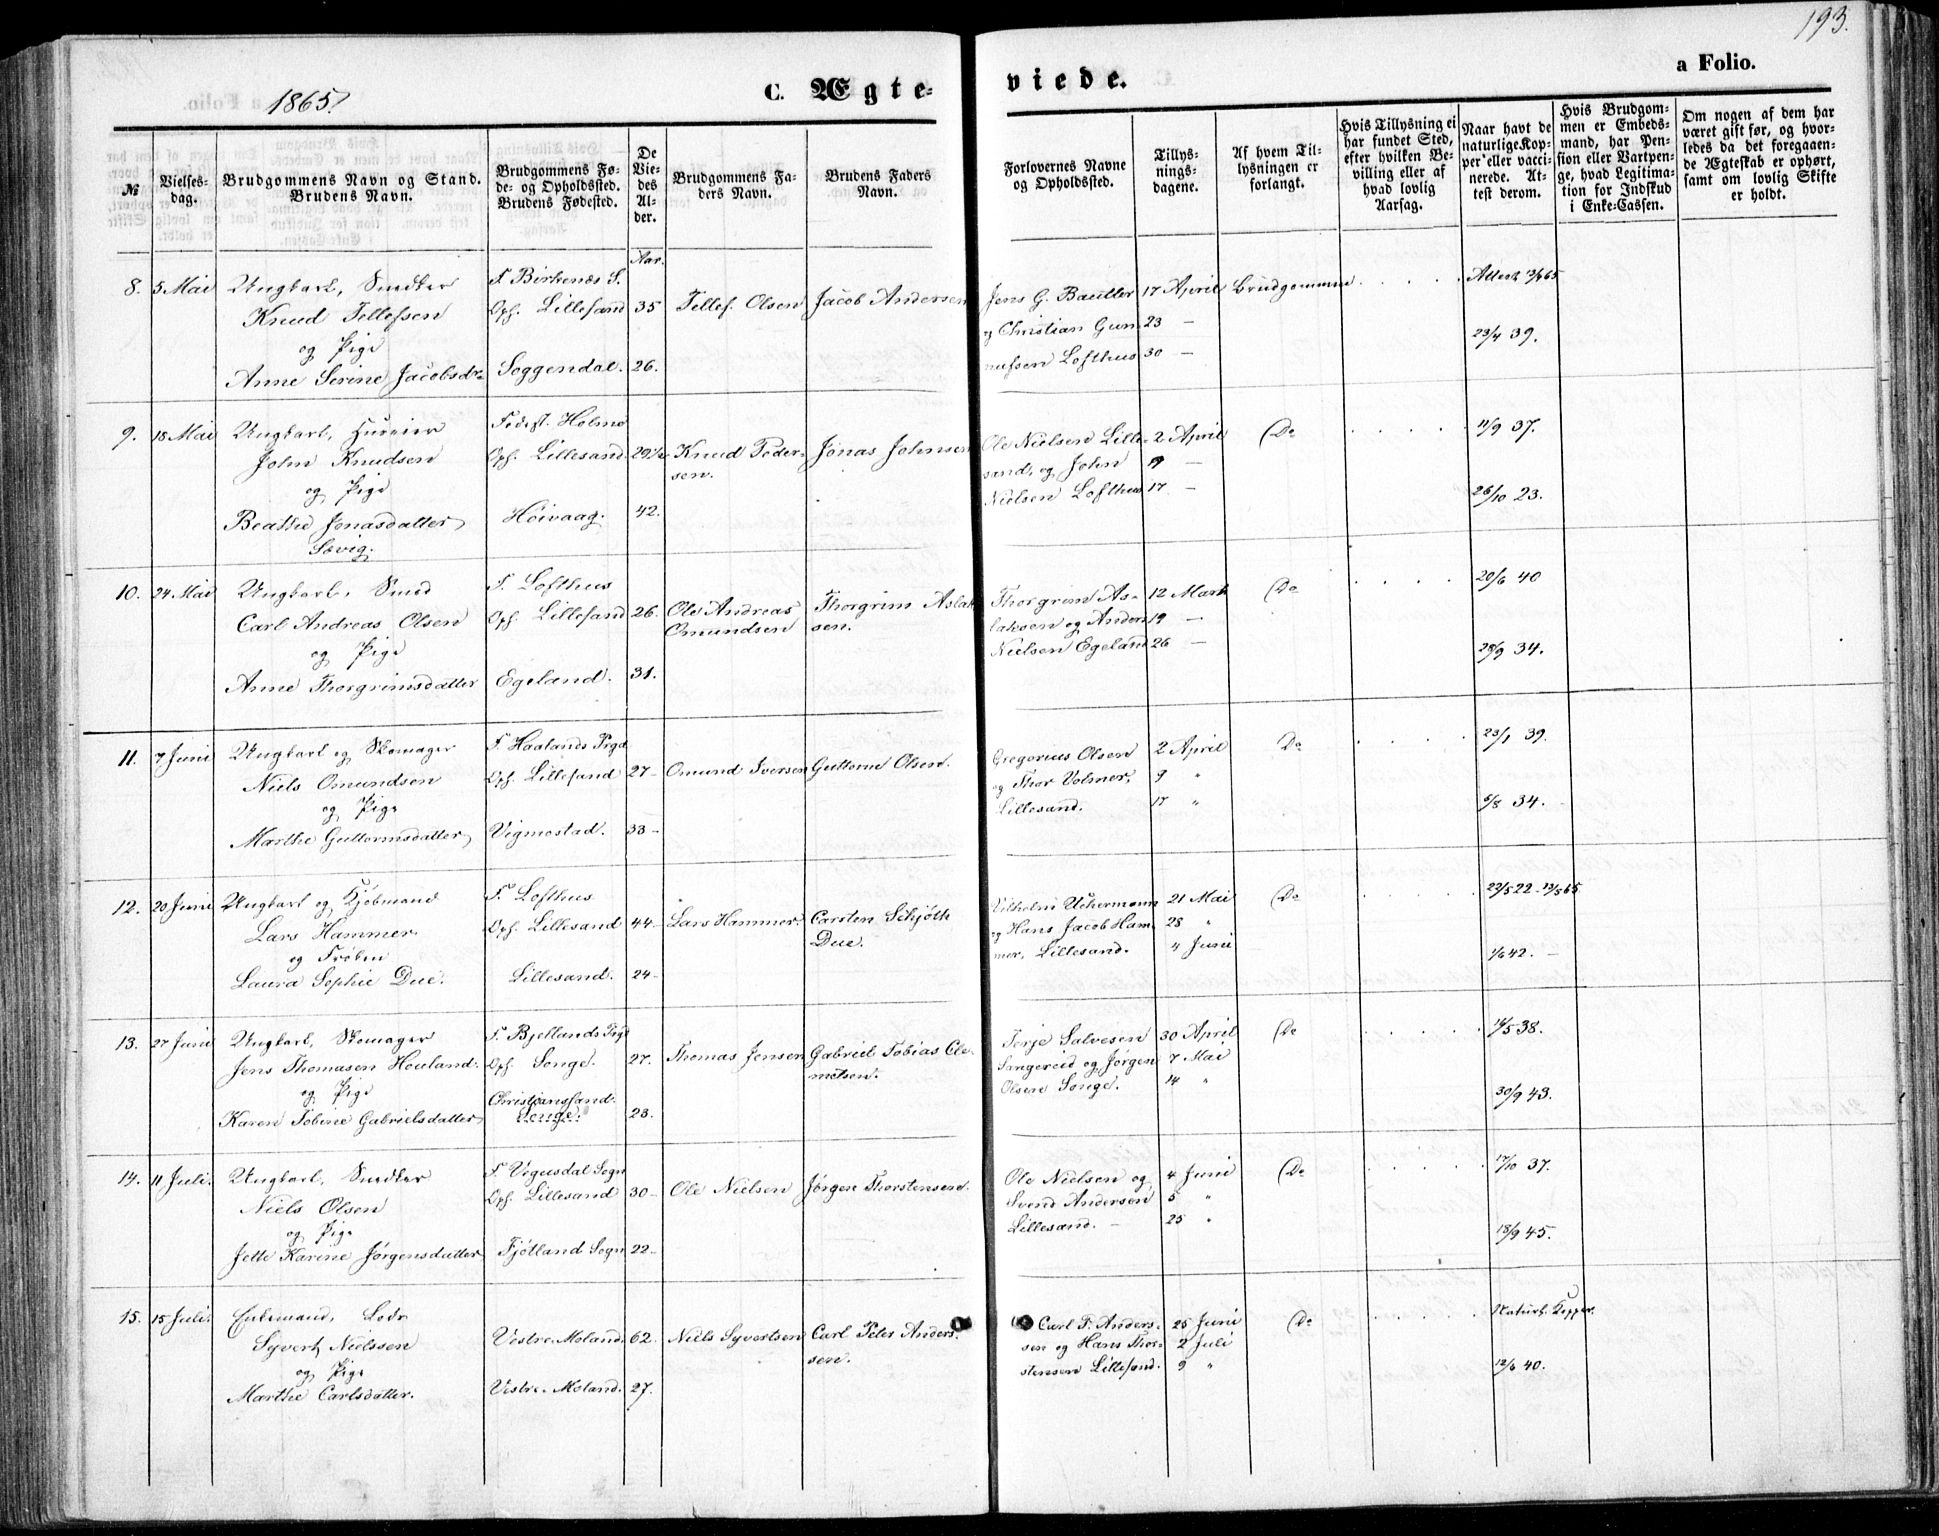 193.
1865.
C. Ægteviede.
a Folio.
№
Vielses-
dag.
Brudgommens Navn og Stand.
Brudens Navn.
Brudgommens Fø-
de- og Opholdssted.
Brudens Fødested.
De
Vie-
des
Al-
der.
Brudgommens Fa-
ders Navn.
Brudens Faders
Navn.
Forlovernes Navne
og Opholdssted.
Tillys-
nings-
dagene.
Af hvem Til-
lysningen er
forlangt.
Hvis Tillysning ei
har fundet Sted,
efter hvilken Be-
villing eller af
hvad lovlig
Aarsag.
Naar havt de
naturlige Kop-
per eller vacci-
nerede. At-
test derom.
Hvis Brudgom-
men er Embeds-
mand, har Pen-
sion eller Vartpen-
ge, hvad Legitima-
tion for Indskud
i Enke-Cassen.
Om nogen af dem har
været gift før, og hvor-
ledes da det foregaaen-
de Ægteskab er ophørt,
samt om lovlig Skifte
er holdt.
Aar.
8. 5 Mai Ungkarl, Snedker F. Birkenæs S.
Knud Tellefsen Oph. Lillesand 35 Tellef Olsen Jacob Andersen
og Pige
Anne Serine Jacobsdr Soggendal. 26.
Jens G. Bautler 17 April Brudgommen
og Christian Gun- 23 —
nufsen Lofthus 30 —
23/4 39.
9. 18 Mai Ungkarl,
John Knudsen Oph. Lillesand Knud Peder- Jonas Johnsen
og Pige sen.
Beathe Jonasdatter Høivaag. 42.
Sævig.
Ole Nielsen Lille- 2 April Do 11/9 37.
sand, og John
Nielsen Lofthus 17 — 26/10 23.
10. 24 Mai Ungkarl, Smed F. Lofthus
Carl Andreas Olsen Oph. Lillesand 26. Ole Andreas Thorgrim Aslak-
og Pige Omundsen sen.
Anne Thorgrimsdatter Egeland. 31.
Thorgrim As- 12 Marts Do 20/6 40
laksen og Anders 19 —
Nielsen Egeland 26 — 28/9 34.
11. 7 Juni Ungkarl og Skomager F. Haalands Prgd
Niels Omundsen Oph. Lillesand 27 – Omund Iversen Guttorm Olsen.
og Pige
Marthe Guttormsdatter Vigmostad. 33 –
Gregorius Olsen 2 April Do 23/1 39.
og Thor Volmer, 9 "
Lillesand. 17 " 6/8 34.
12. 20 Juni Ungkarl og Kjøbmand F. Lofthus
Lars Hammer Oph. Lillesand 44 – Lars Hammer. Carsten Schjøth
og Frøken Due.
Laura Sophie Due. Lillesand. 24 –
Vilhelm Uchermann 21 Mai Do 22/5 22 – 13/5 65
og Hans Jacob Ham- 28 "
mer, Lillesand. 4 Juni 1/6 42. –
13. 27 Juni Ungkarl, Skomager F. Bjellands Prgd
Jens Thomasen Houland. Oph. Songe. 27. Thomas Jensen Gabriel Tobias Cle-
og Pige mетsen.
Christiansand.
Karen Tobine Gabrielsdatter Songe. 28.
Terje Salvesen 30 April Do 38.
Sangereid og Jørgen 7 Mai
Olsen Songe. 14 " 30/9 43.
14. 11 Juli. Ungkarl, Snedker F. Vegusdal Sogn
Niels Olsen Oph. Lillesand 30 – Ole Nielsen Jørgen Thorstensen.
og Pige
Jette Karine Jørgensdatter Fjotland Sogn 22 –
Ole Nielsen og 4 Juni Do 17/10 37.
Svend Andersen 5 "
Lillesand. – 25 " 18/9 45.
15. 15 Juli. Enkemand, Lods
Syvert Nielssen Vestre-Moland. 62. Niels Syvertsen Carl Peter Anders-
og Pige sen.
Marthe Carlsdatter. Vestre-Moland. 27.
Carl P. Anders- 25 Juni Do Naturl. Kopper.
sen og Hans Thor- 2 Juli
stensen Lillesand. 9 " 12/6 40.